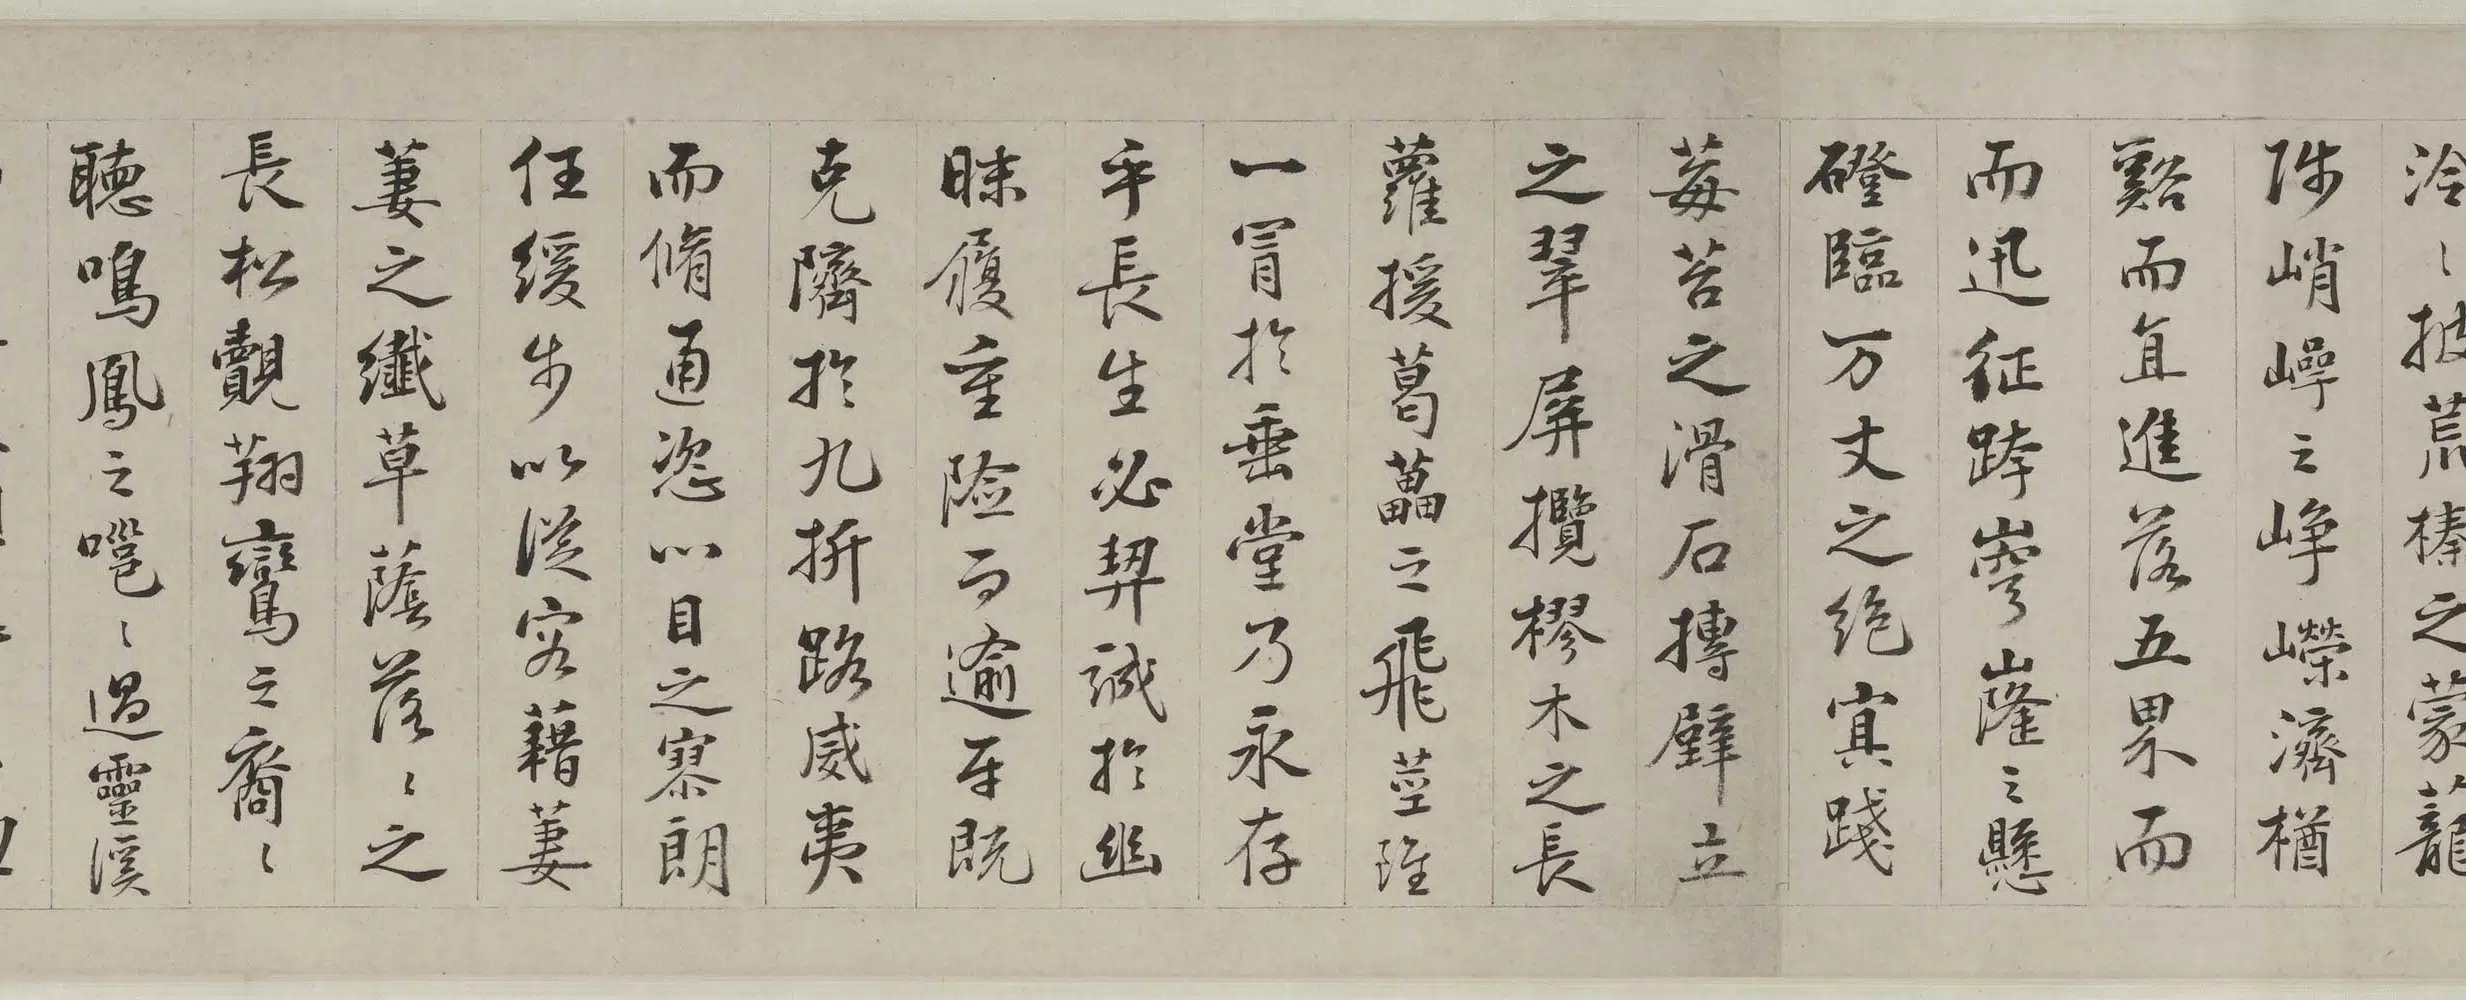 泠〻披荒榛之蒙蘢
陟峭崿之崢嶸濟楢
谿而直進落五界而
而迅征跨穹嶐之懸
磴臨万丈之絶寘踐
莓苔之滑石摶壁立
之翠屏攬樛木之長
蘿援葛藟之飛莖雖
一冐於垂堂乃永存
乎長生必契誠於幽
昧履重險而逾平既
克隮於九折路威夷
而脩通恣心目之寥朗
任緩步以從容藉萋
萋之纖草蔭落〻之
長松覿翔鸞之裔〻
聽鳴鳳之嗈〻過靈溪